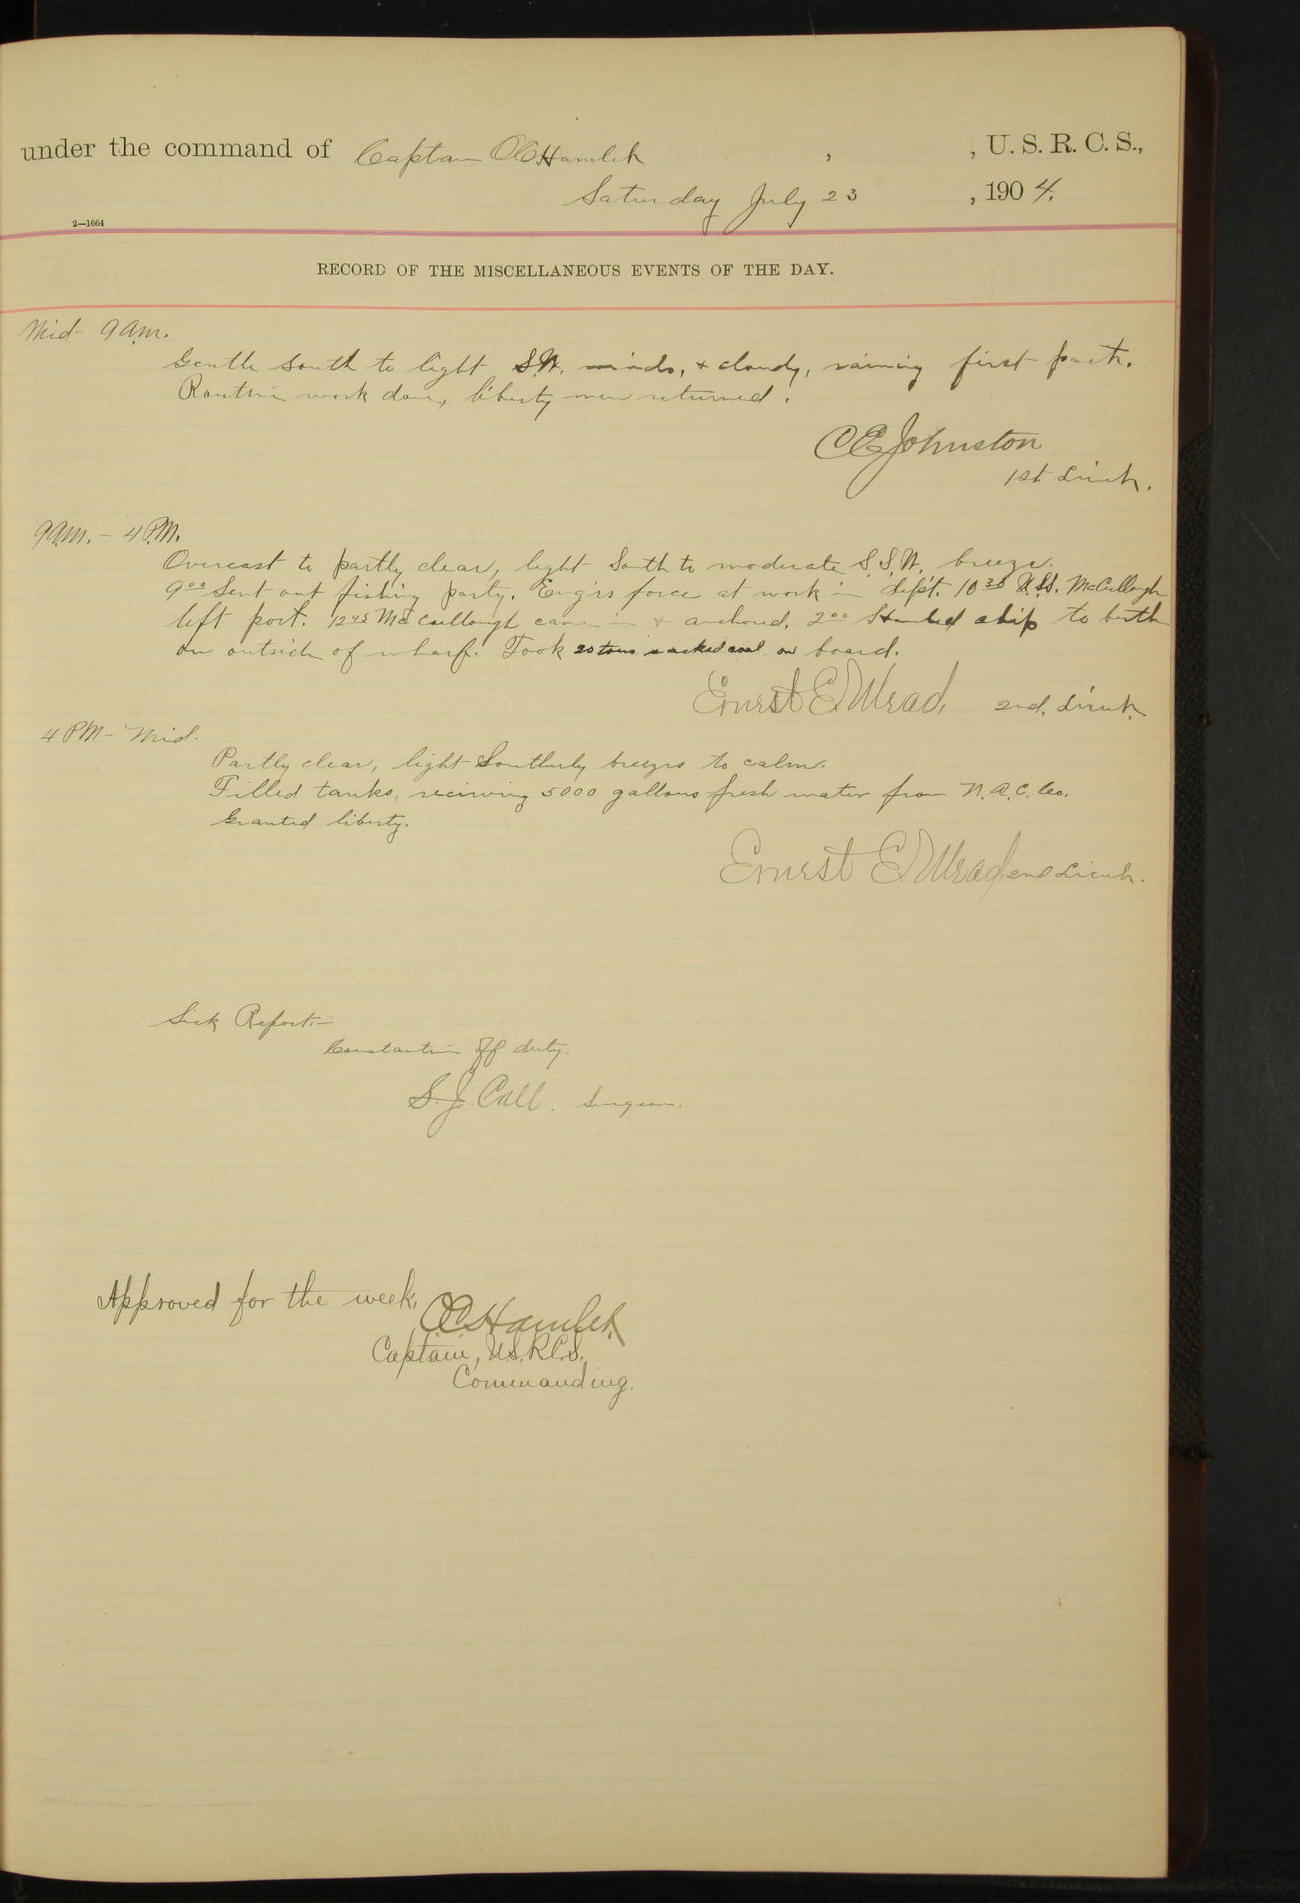 under the command of Captain O C Hamlet , , U. S. R. C. S.,
Saturday July 23 , 1904.
2—1664
RECORD OF THE MISCELLANEOUS EVENTS OF THE DAY.
Mid - 9 a.m.
Gentle South to light S.W. winds, + cloudy, raining first part.
Routine work done, liberty men returned.
C E Johnston
1st Lieut.
9 a.m. - 4 P.M.
Overcast to partly clear, light South to moderate S.S.W. breeze.
9⁰⁰ Sent out fishing party. Eng'rs force at work in Dept. 10³⁰ McCullough
left port. 12⁴⁵ McCullough came in + anchored. 2⁰⁰ ship to berth
on outside of wharf. Took 20 tons sacked coal on board.
Ernest E. Mead, 2nd. Lieut.
4 PM - Mid.
Partly clear, light Southerly breezes to calm.
Filled tanks, receiving 5000 gallons fresh water from N. A. C. Co.
Granted liberty.
Ernest E. Mead 2nd Lieut.
Sick Report:-
Constantin off duty.
S. J. Call. Surgeon.
Approved for the week,
O C Hamlet,
Captain, U.S.R.C.S.,
Commanding.